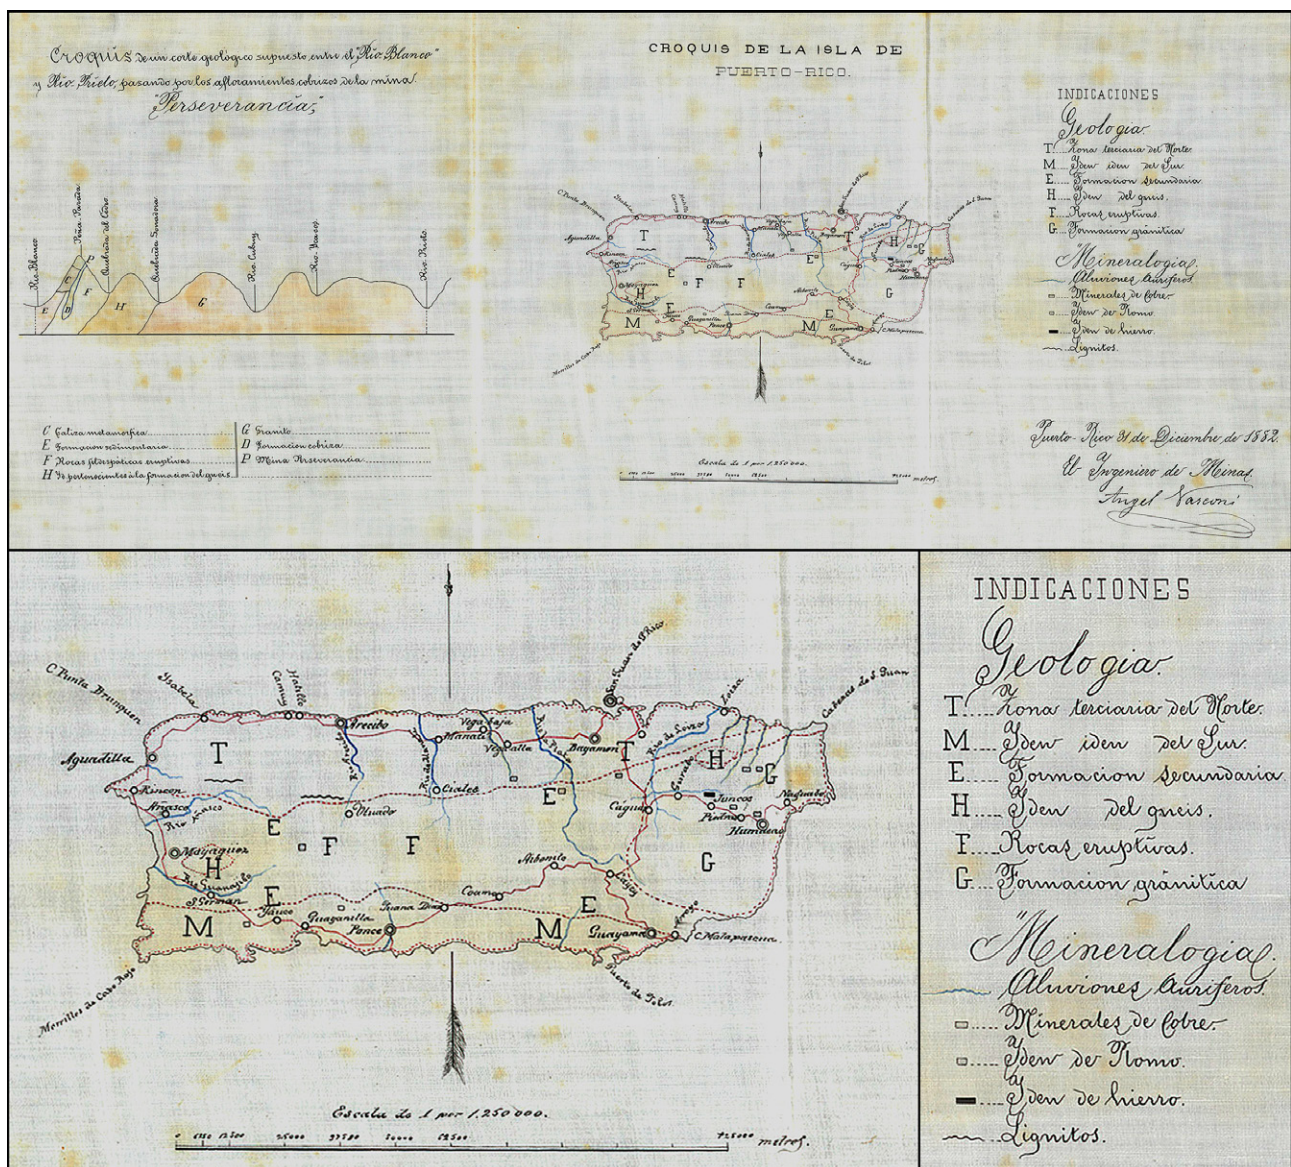 Croquis de un corte geológico supuesto entre el "Rio-Blanco"
y Rio-Prieto, pasando por los afloramientos cobrizos de la mina
"Perseverancia"
Rio-Blanco
Peña-Parada
Quebrada del Cedro
Quebrada Sonadora
Rio Cubuy
Rio-Prieto
P
C
E
D
F
H
G
C Caliza metamorfica
E Formacion sedimentaria
F Rocas feldespáticas eruptivas
H Yd pertenecientes á la formacion del gneis
G Granito
D Formacion cobriza
P Mina Perseverancia
CROQUIS DE LA ISLA DE
PUERTO-RICO.
Escala de 1 por 1,250 000.
metros.
INDICACIONES
Geologia
T Zona terciaria del Norte
M Yden iden del Sur.
E Formacion secundaria
H Yden del gneis
F Rocas eruptivas.
G Formacion gránitica
Mineralogia
Aluviones Auriferos.
Minerales de Cobre
Yden de Plomo
Yden de hierro
Lignitos.
Puerto-Rico 31 de Diciembre de 1882.
El Yngeniero de Minas
Angel Vasconi
C. Punta Brunquen
Isabela
Camuy
Hatillo
Arecibo
Manati
Vega Baja
Vega alta
Rio de la Plata
Bayamon
San Juan de P. Rico
Rio de Loiza
Loiza
Cabezas de S. Juan
Aguadilla
Rincon
Añasco
Rio Añasco
Utuado
Ciales
Caguas
Gurabo
Juncos
Piedras
Humacao
Naguabo
Mayaguez
Rio Guanajibo
S. German
Yauco
Guayanilla
Ponce
Juana Diaz
Coamo
Aibonito
Cayey
Guayama
Arroyo
C. Malapascua
Morrillos de Cabo Rojo
Puerto de Jobos
T
T
E
E
E
E
F
F
H
H
G
G
M
M
Escala de 1 por 1,250 000.
0 6250 12500 25000 37500 50000 62500 125000 metros.
INDICACIONES
Geologia.
T.... Zona terciaria del Norte.
M.... Yden iden del Sur.
E.... Formacion secundaria
H.... Yden del gneis.
F.... Rocas eruptivas.
G.... Formacion gránitica
"Mineralogia.
Aluviones Auriferos.
Minerales de Cobre
Yden de Plomo.
Yden de hierro.
Lignitos.